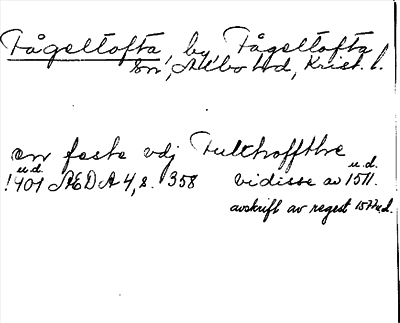 Fågeltofta, by, Fågeltofta
sn, Albo hd, Krist. l.
en feste vdj Fulthoffthe
u.d. u.d.
1401 ÆDA 4, s. 358 vidisse av 1511.
avskrift av regest 1577 u.d.